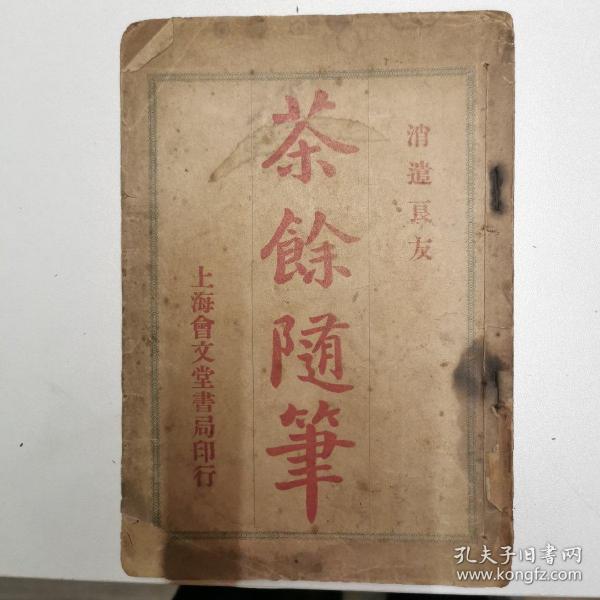 消遣良友
茶餘随筆
上海會文堂書局印行
孔夫子旧書网
www.kongfz.com